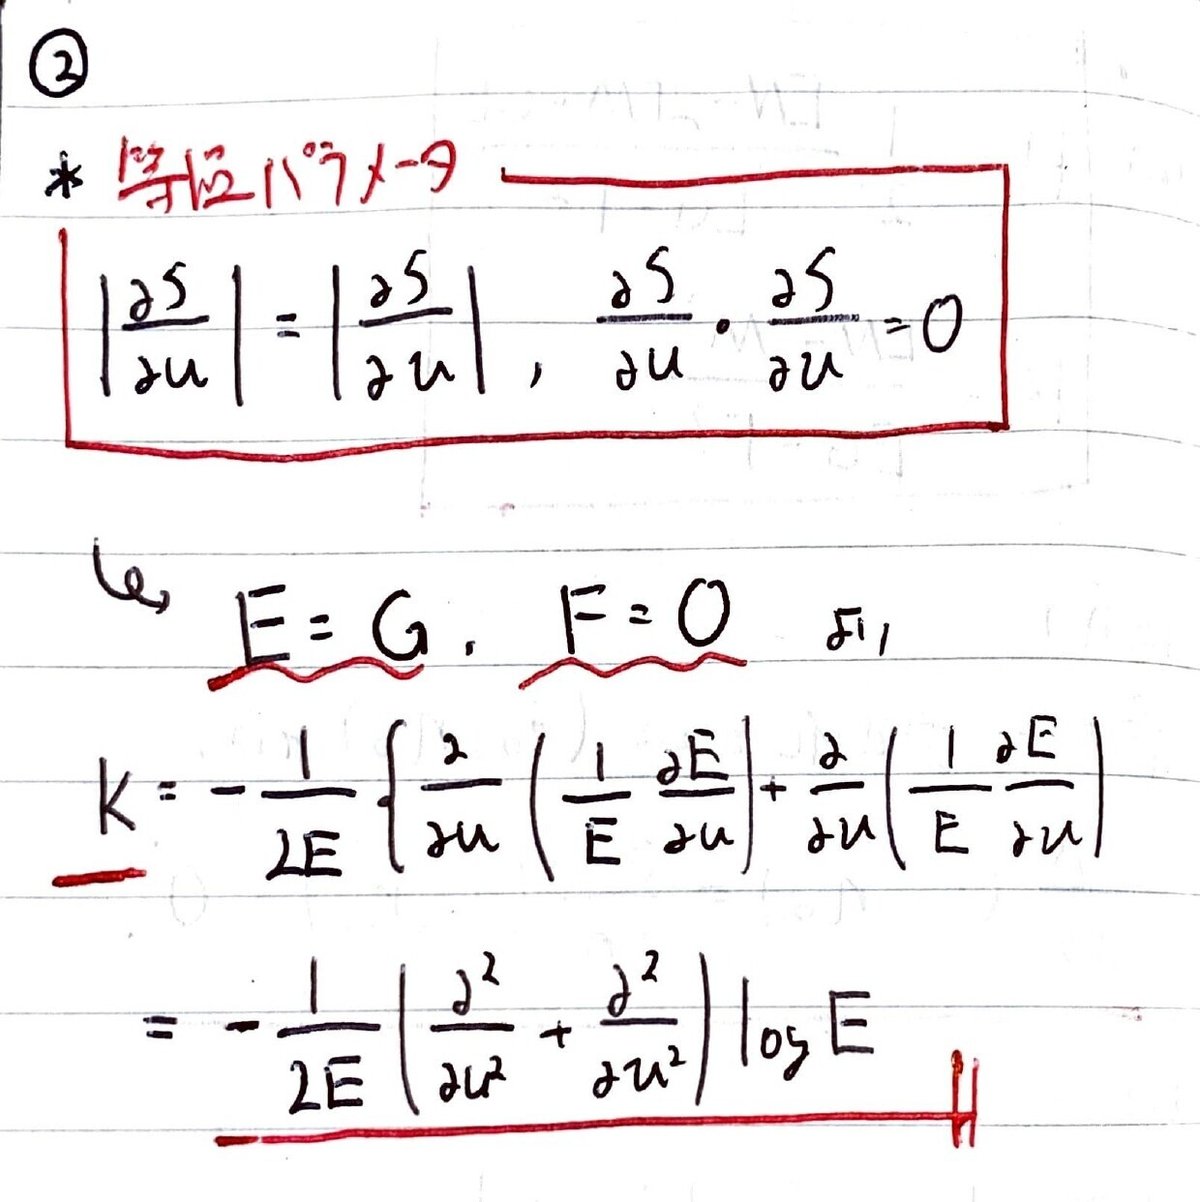 ②
* 等位パラメータ
|∂S/∂u| = |∂S/∂u|, ∂S/∂u · ∂S/∂u = 0
↳ E = G, F = 0 より,
K = -1/2E {∂/∂u (1/E ∂E/∂u) + ∂/∂u (1/E ∂E/∂u)
= -1/2E (∂²/∂u² + ∂²/∂u²) log E